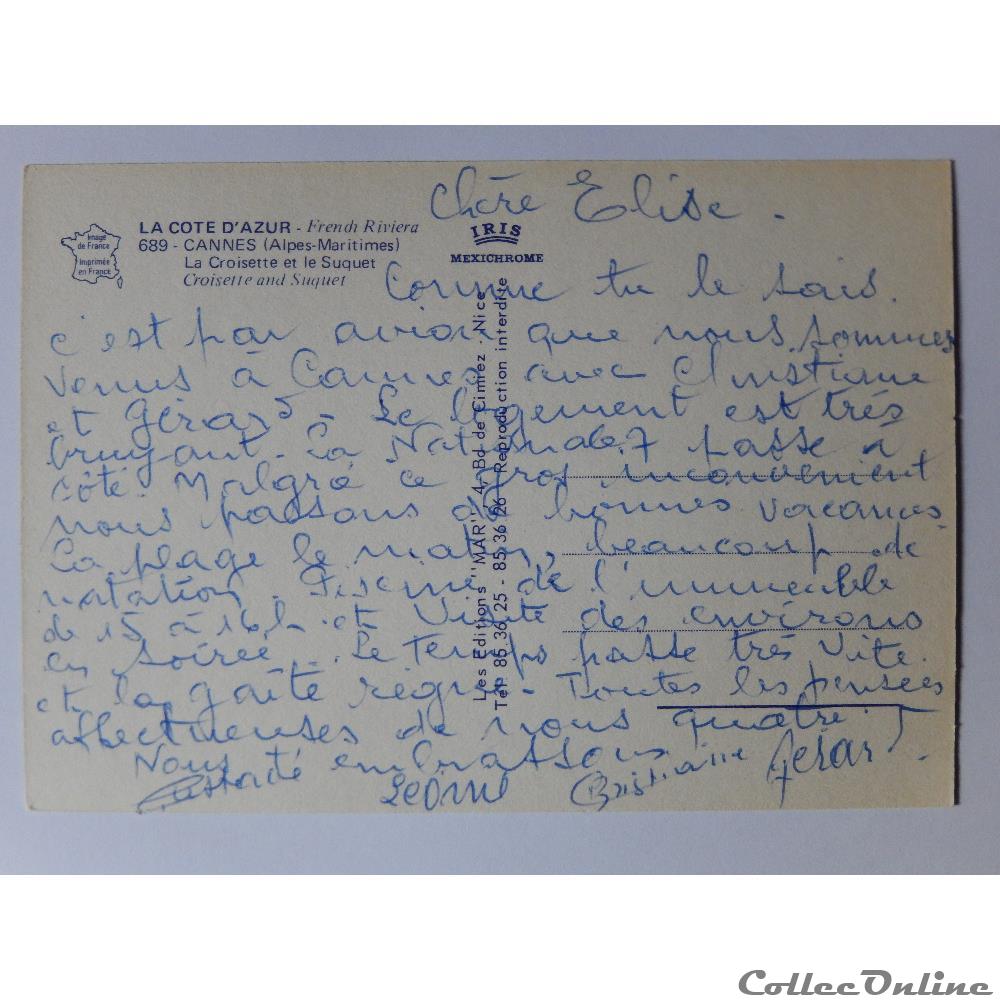 Chère Elise -
LA COTE D'AZUR - French Riviera
689 - CANNES (Alpes-Maritimes)
La Croisette et le Suquet
Croisette and Suquet
Image de France
Imprimée en France
IRIS
MEXICHROME
Les Editions "MAR" 4, Bd de Cimiez - Nice
Tél 85.36.25 - 85.36.26 Reproduction interdite
Comme tu le sais.
c'est par avion que nous sommes
venus à Cannes avec Christiane
et Gérard - Le logement est très
bruyant. La Nationale 7 passe à
côté. Malgré ce gros inconvenient
nous passons de bonnes vacances
La plage le matin, beaucoup de
natation. Piscine de l'immeuble
de 15 à 16h et Visite des environs
en soirée. Le Temps passe très Vite.
et la gaîté règne - Toutes les pensées
affectueuses de nous quatre.
Nous t'embrassons
Léonie Christiane Gérard
CollecOnline